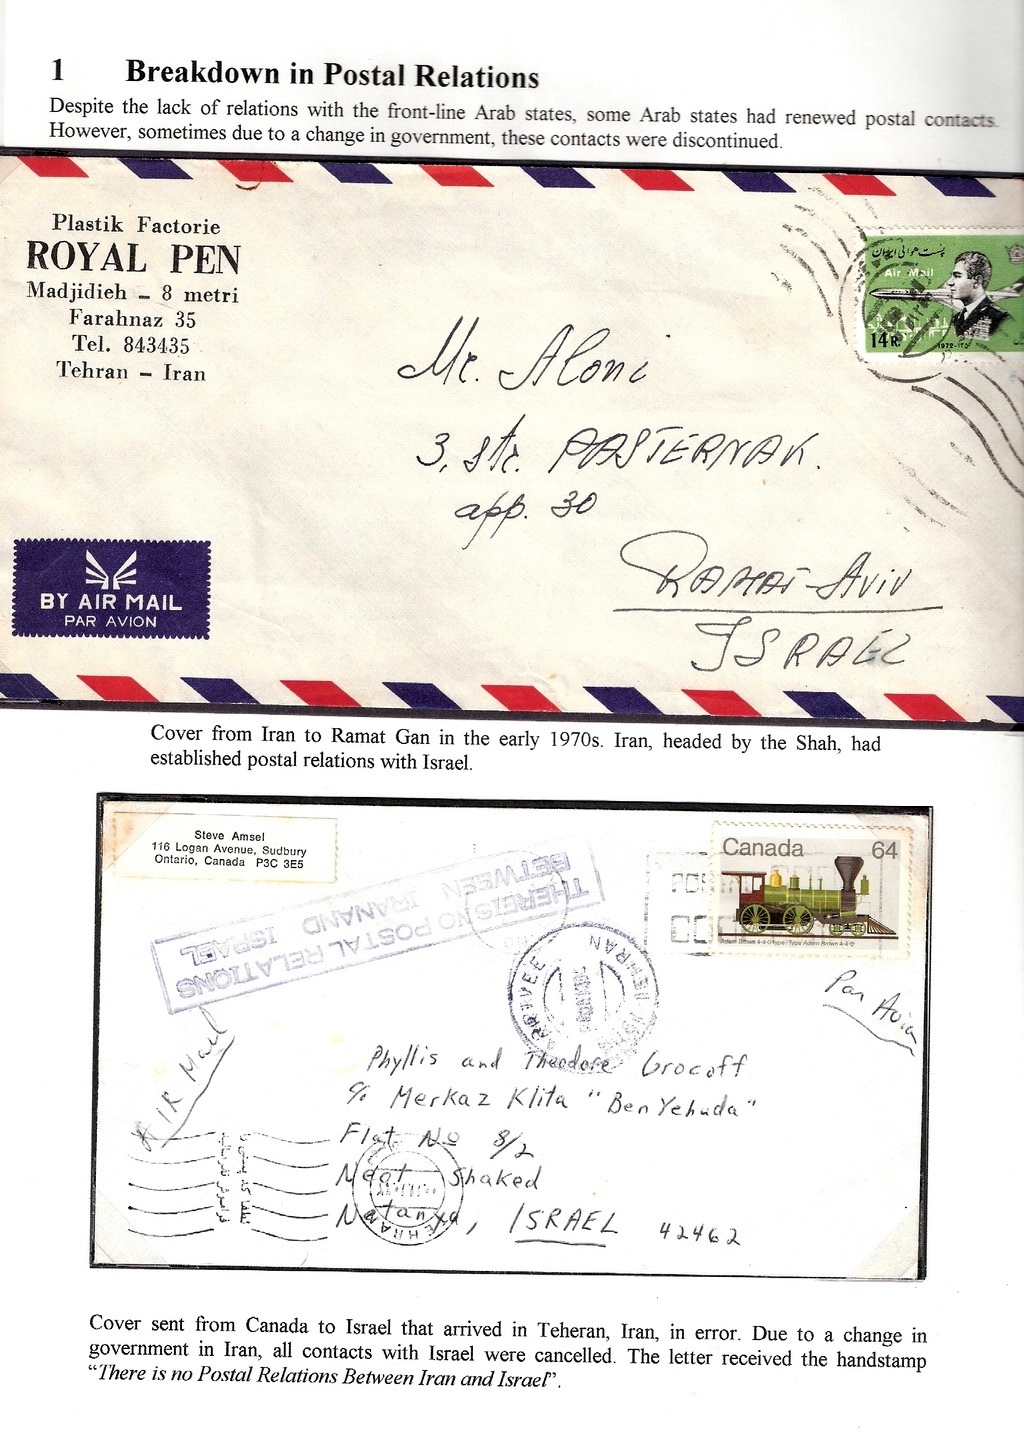 1 Breakdown in Postal Relations
Despite the lack of relations with the front-line Arab states, some Arab states had renewed postal contacts.
However, sometimes due to a change in government, these contacts were discontinued.
Plastik Factorie
ROYAL PEN
Madjidieh – 8 metri
Farahnaz 35
Tel. 843435
Tehran – Iran
پست هوائی ایران
Air Mail
14 R.
1972-۱۳۵۱
Mr. Aloni
3, str. PASTERNAK.
app. 30
RAMAT-AVIV
ISRAEL
BY AIR MAIL
PAR AVION
Cover from Iran to Ramat Gan in the early 1970s. Iran, headed by the Shah, had
established postal relations with Israel.
Steve Amsel
116 Logan Avenue, Sudbury
Ontario, Canada P3C 3E5
Canada 64
Adam Brown 4-4-0 type/Type Adam Brown 4-4-0
THERE IS NO POSTAL RELATIONS
BETWEEN IRANAND ISRAEL
TEHRAN
Par Avion
AIR Mail
Phyllis and Theodore Grocoff
c/o Merkaz Klita "Ben Yehuda"
Flat No 8/2
Neot Shaked
Netanya, ISRAEL 42462
لطفا کد پستی را
فراموش نفرمائید
TEHRAN
Cover sent from Canada to Israel that arrived in Teheran, Iran, in error. Due to a change in
government in Iran, all contacts with Israel were cancelled. The letter received the handstamp
“There is no Postal Relations Between Iran and Israel”.